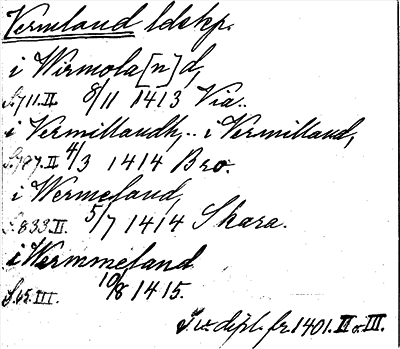 Vermland ldskp.
i Wirmola[n]d,
S. 711. II. 8/11 1413 Via.
i Vermillandh, .. i Vermilland,
S. 787. II 4/3 1414 Bro.
i Wermeland,
S. 833. II. 5/7 1414 Skara.
i Wermmeland
S. 65. III. 10/8 1415.
Sv. dipl. fr. 1401. II o. III.